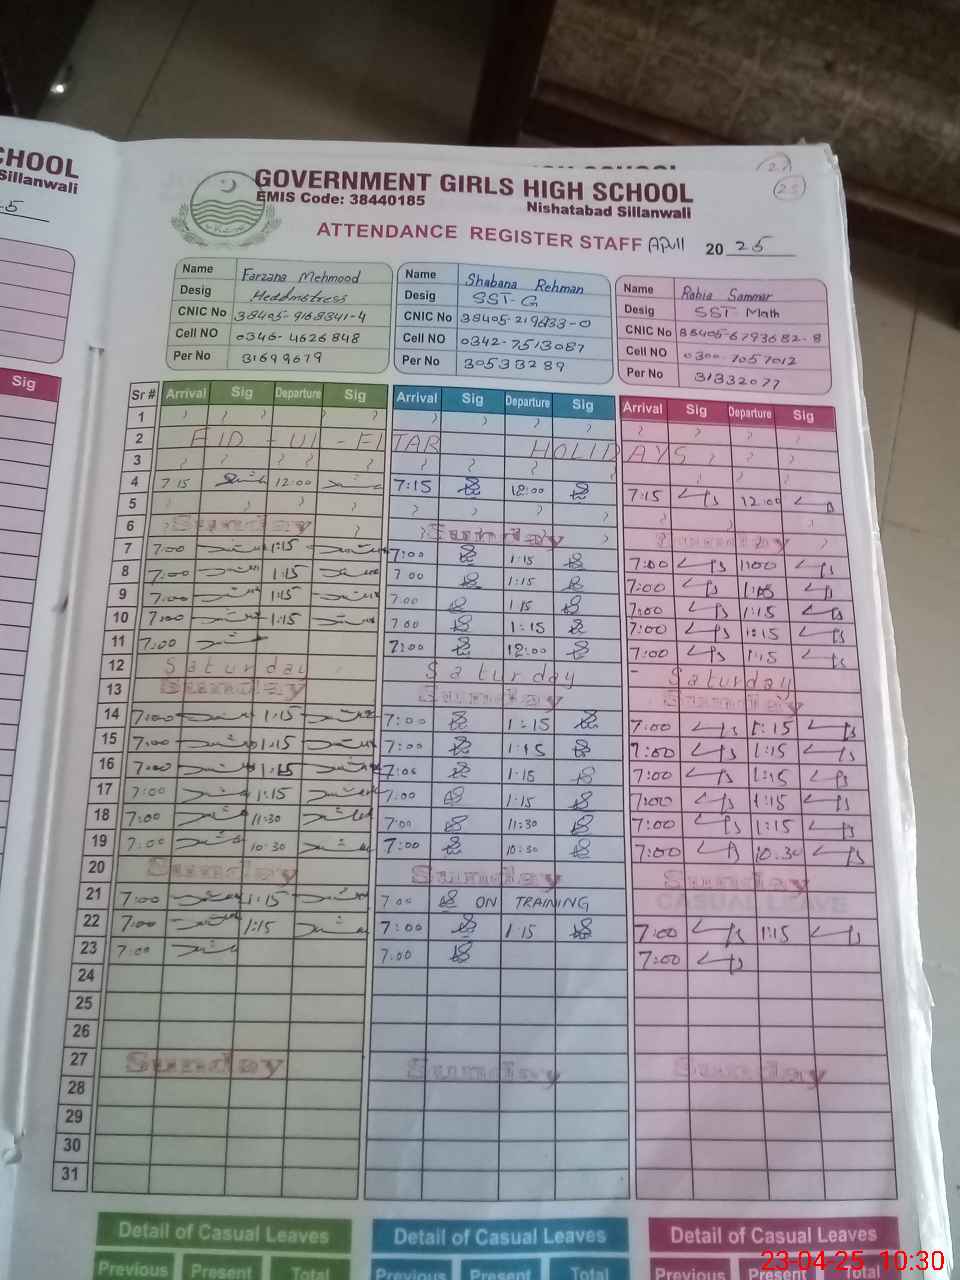 CHOOL
Sillanwali
Sig
25
GOVERNMENT GIRLS HIGH SCHOOL
EMIS Code: 38440185
Nishatabad Sillanwali
ATTENDANCE REGISTER STAFF April 2025
Name Farzana Mehmood
Desig Headmistress
CNIC No 38405-9168341-4
Cell NO 0346-4626848
Per No 31699679
Name Shabana Rehman
Desig SST-G
CNIC No
Cell NO 0342-7513087
Per No 30533289
Name Rabia Sammar
Desig SST Math
CNIC No 38405-6793682-8
Cell NO 0300-7057012
Per No 31332077
Sr # Arrival Sig Departure Sig Arrival Sig Departure Sig Arrival Sig Departure Sig
1
2 EID - UL - FITAR HOLIDAYS
3
4 7:15 12:00 7:15 12:00 7:15 12:00
5
6 Sunday Sunday Sunday
7 7:00 1:15 7:00 1:15 7:00 1:00
8 7:00 1:15 7:00 1:15 7:00 1:15
9 7:00 1:15 7:00 1:15 7:00 1:15
10 7:00 1:15 7:00 1:15 7:00 1:15
11 7:00 7:00 12:00 7:00 1:15
12 Saturday Saturday Saturday
13 Sunday Sunday Sunday
14 7:00 1:15 7:00 1:15 7:00 1:15
15 7:00 1:15 7:00 1:15 7:00 1:15
16 7:00 1:15 7:00 1:15 7:00 1:15
17 7:00 1:15 7:00 1:15 7:00 1:15
18 7:00 11:30 7:00 11:30 7:00 1:15
19 7:00 10:30 7:00 10:30 7:00 10:30
20 Sunday Sunday Sunday
21 7:00 1:15 7:00 ON TRAINING CASUAL LEAVE
22 7:00 1:15 7:00 1:15 7:00 1:15
23 7:00 7:00 7:00
24
25
26
27 Sunday Sunday Sunday
28
29
30
31
Detail of Casual Leaves Detail of Casual Leaves Detail of Casual Leaves
Previous Present Total Previous Present Total Previous Present Total
23-04-25 10:30